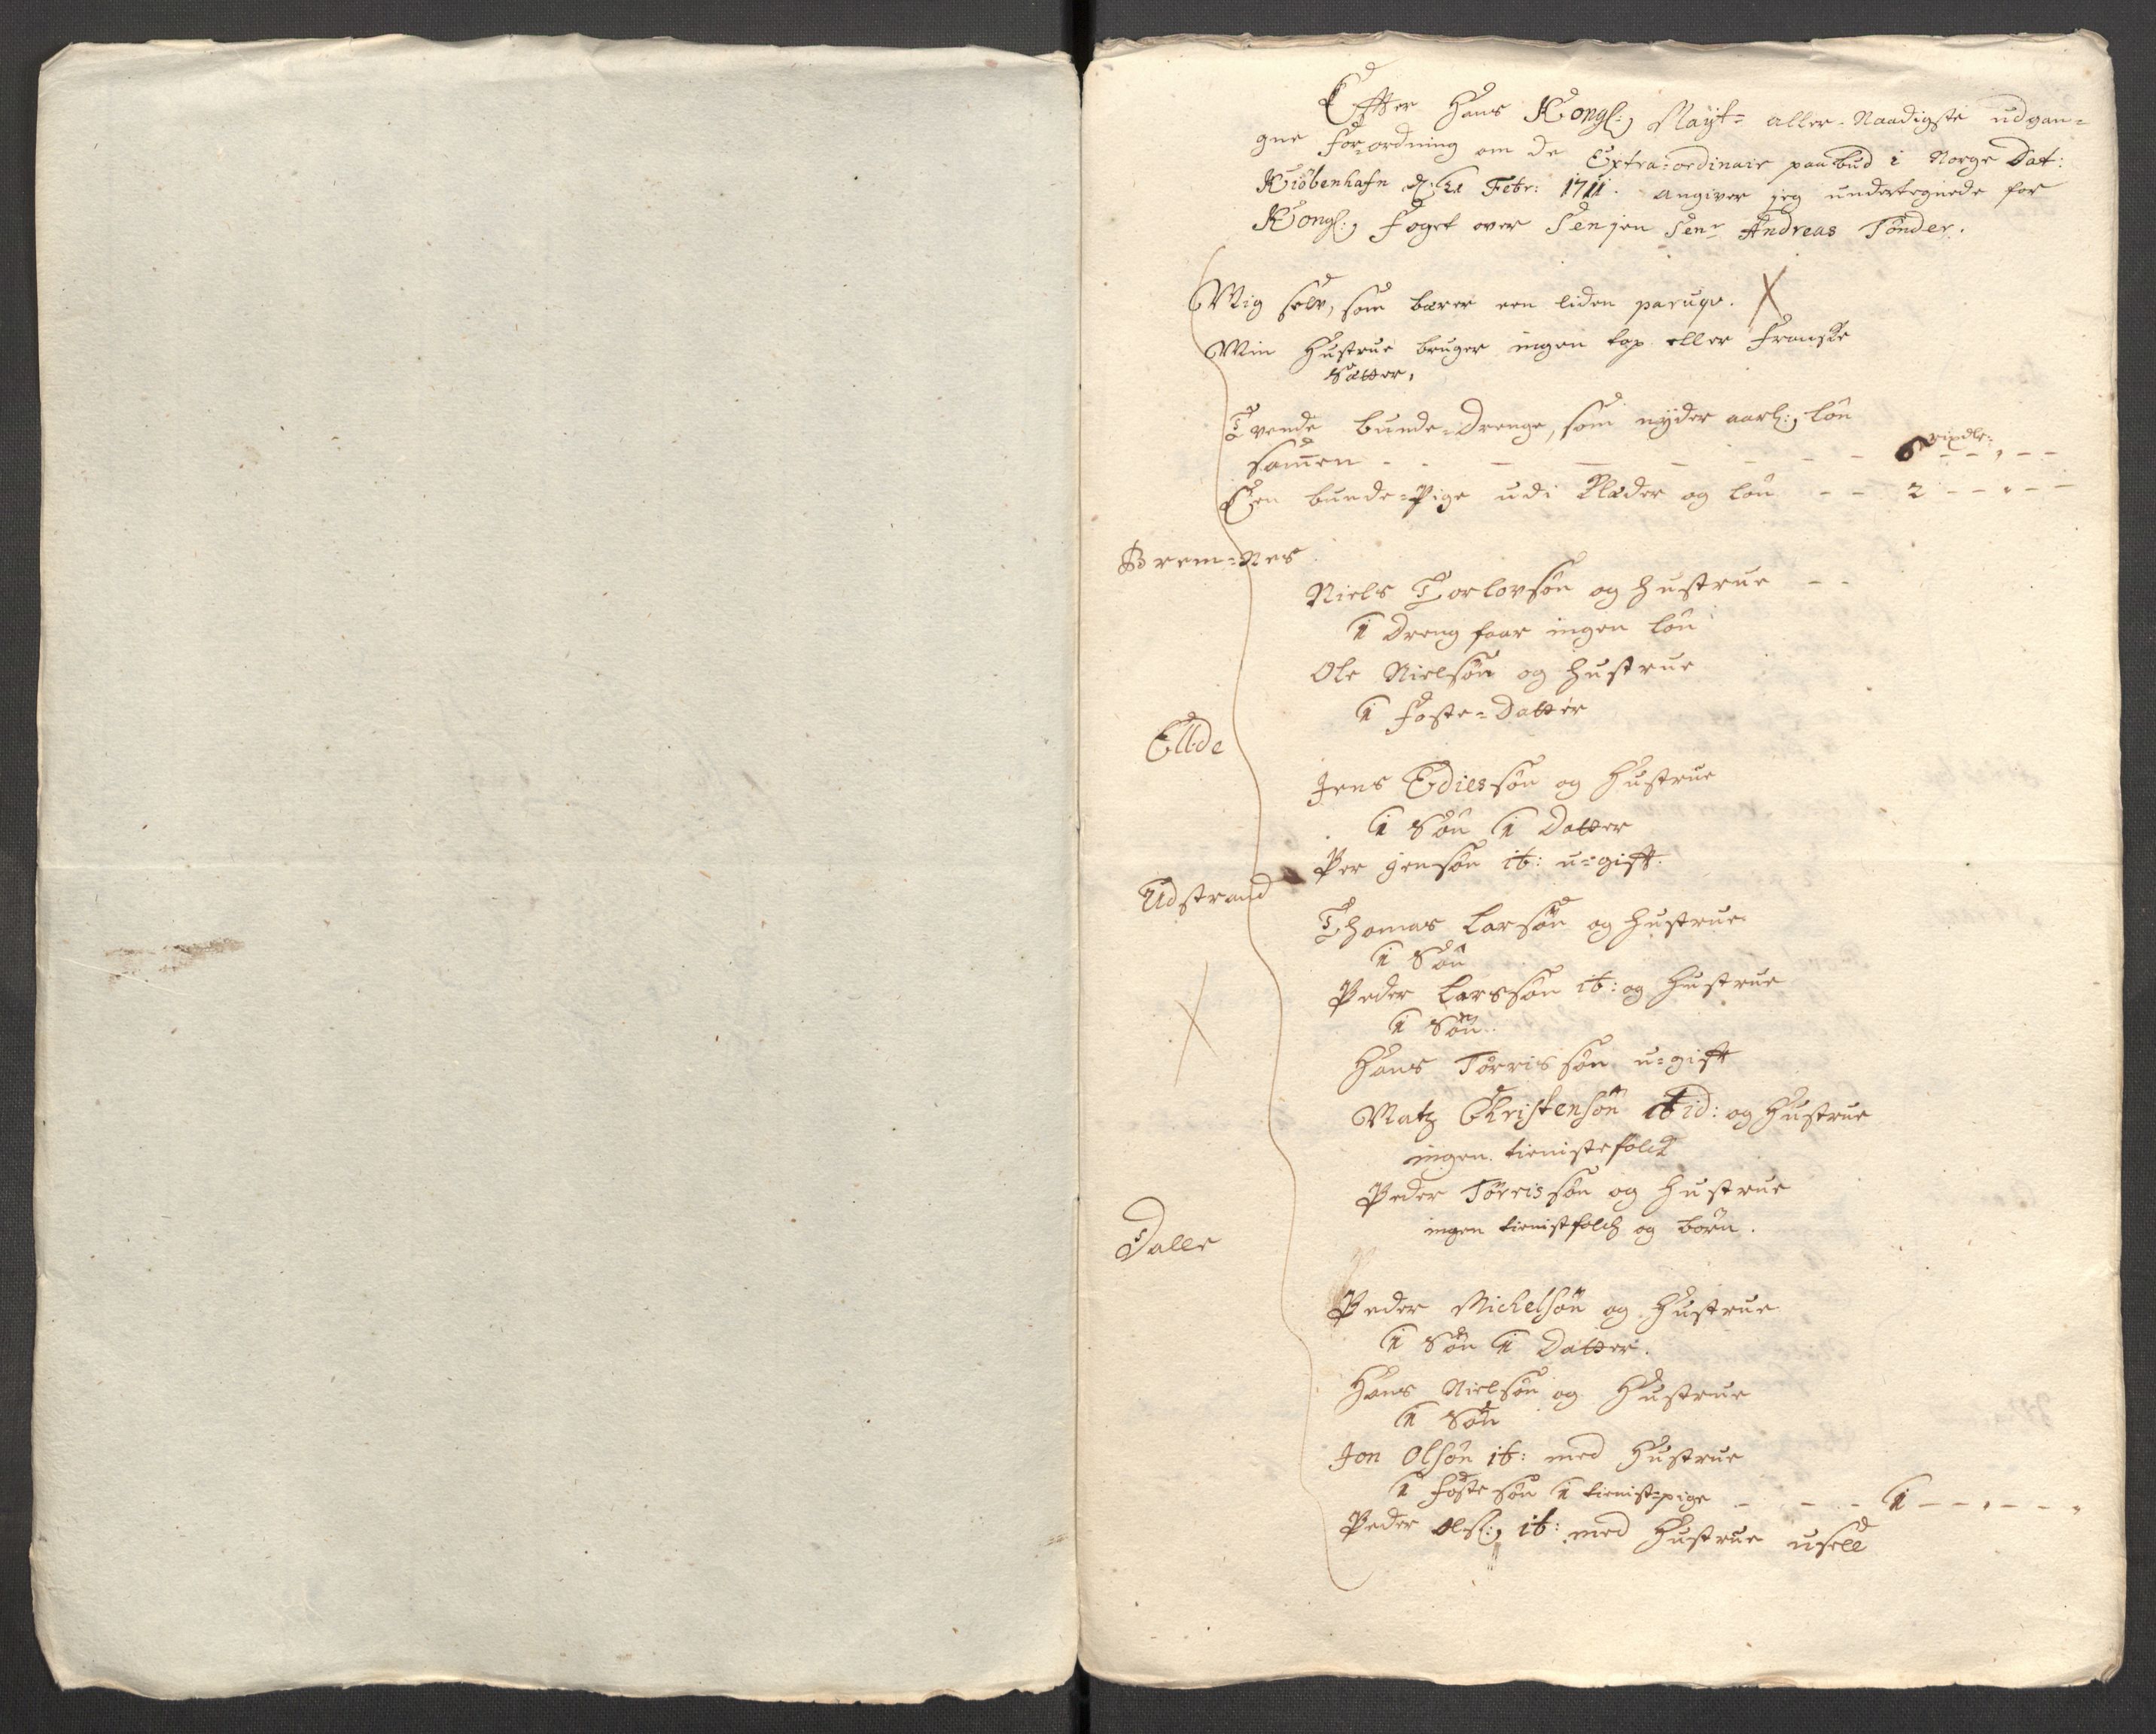 Effter Hans Kongl: Mayt= aller-Naadigste udgan=
gne Forordning om de Extra=ordinair paabud i Norge Dat:
Kiöbenhafn d: 21 Febr: 1711. angiver jeg undertegnede for
Kongl: Foget over Senjen Senr Andreas Tönder.
Mig selv, som bærer een liden paruqe. X
Min Hustrue bruger ingen top eller Franske
Sætter,
Tvende bunde=Drenge, som nyder aarl: lön
sammen - - - - - - - 6 rixdlr: - - , - -
Een bunde=Pige udi Klæder og lön - - 2 - - , - -
Brem=Nes
Niels Torlovsön og hustrue - -
1 Dreng faar ingen lön
Ole Nielsön og hustrue
1 Foste=Datter
Ellde
Jens Ediessön og Hustrue
1 Sön 1 Datter
Per Jensön ib: u=gift.
Udstrand
Thomas Larsön og hustrue
1 Sön
Peder Larssön ib: og Hustrue
1 Sön.
Hans Törrissön u=gift
X
Matz Christensön ibid: og Hustrue
ingen tienistefolck
Peder Törrissön og hustrue
ingen tienistfolch og börn.
Dalle
Peder Michelsön og Hustrue
1 Sön 1 Datter.
Hans Nielsön og Hustrue
1 Sön
Jon Olsön ib: med Hustrue
1 Fostesön 1 tienist=pige - - - 1 - - , - - -
Peder Ols: ib: med Hustrue usell